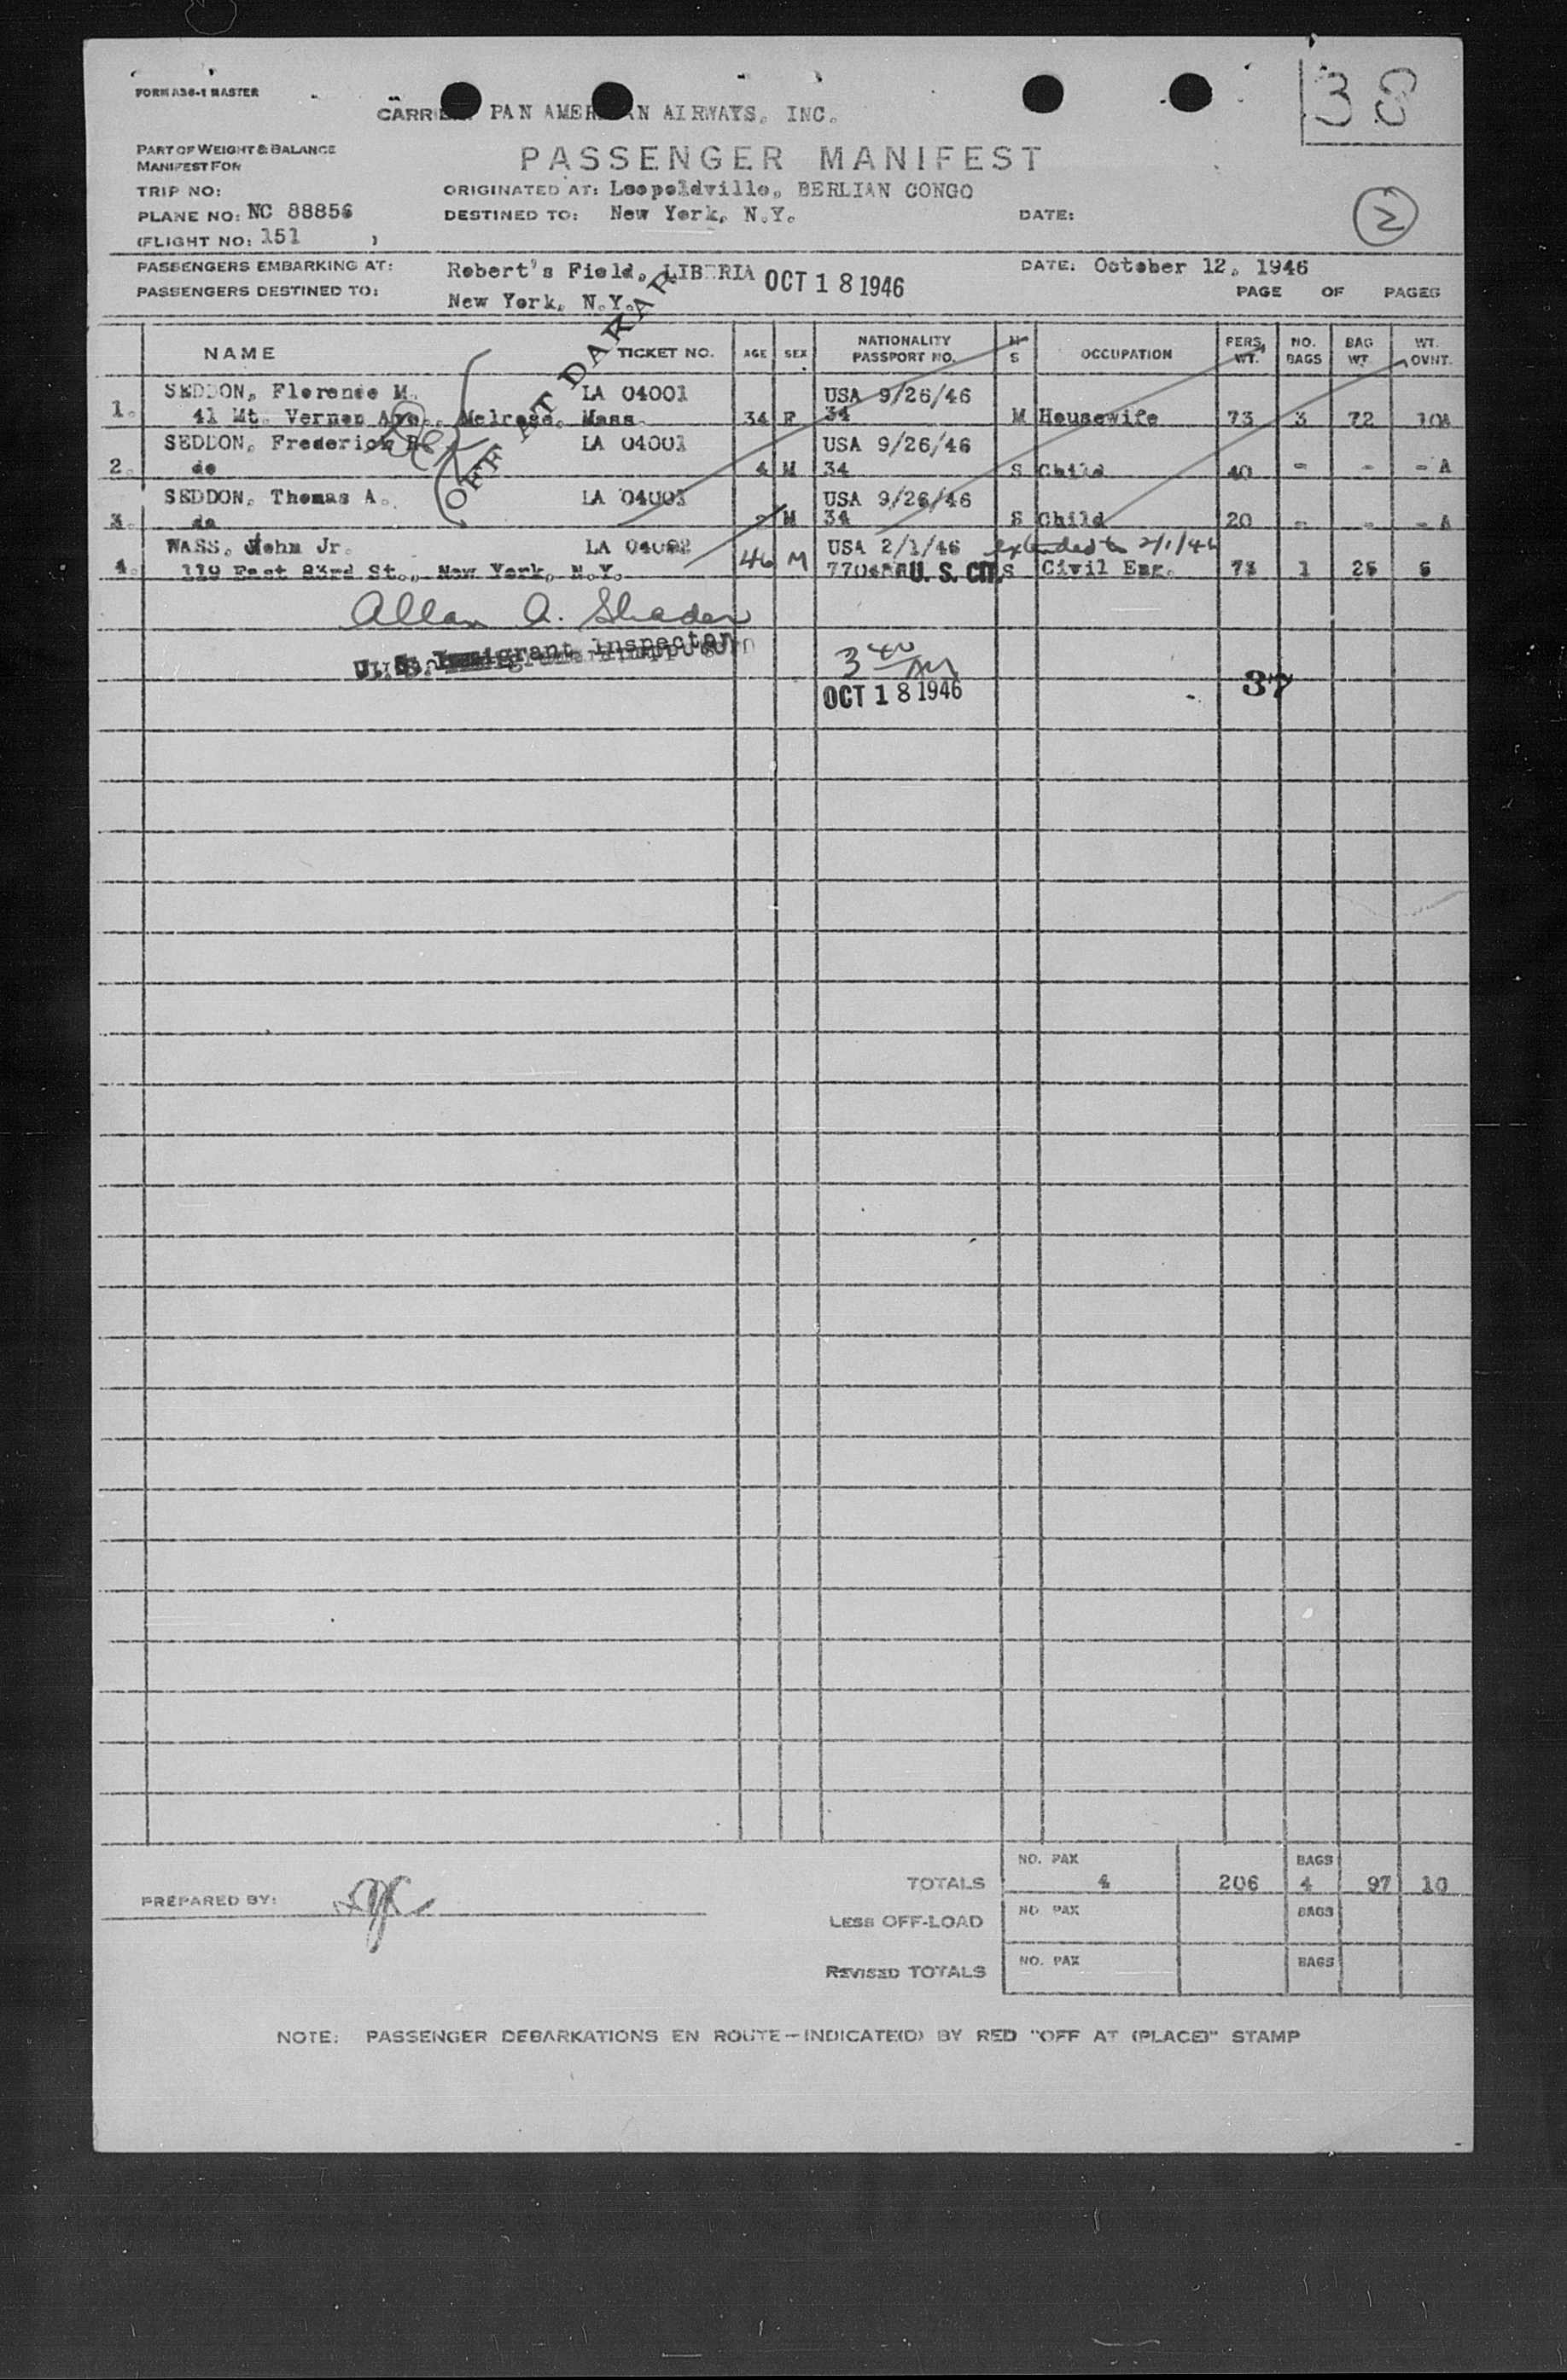 38
FORM A36-1 MASTER
PAN AMERICAN AIRWAYS, INC.
PART OF WEIGHT & BALANCE
MANIFEST FOR
PASSENGER MANIFEST
TRIP NO:
ORIGINATED AT: Leopoldville, BERLIAN CONGO
PLANE NO: NC 88856
DESTINED TO: New York, N.Y.
DATE:
2
(FLIGHT NO: 151 )
PASSENGERS EMBARKING AT: Robert's Field, LIBERIA OCT 18 1946
DATE: October 12, 1946
PASSENGERS DESTINED TO: New York, N.Y.
PAGE OF PAGES
NAME TICKET NO. AGE SEX NATIONALITY PASSPORT NO. M S OCCUPATION PERS. WT. NO. BAGS BAG WT. WT. OVNT.
OFF AT DAKAR
SEDDON, Florence M. LA 04001 USA 9/26/46
1. 41 Mt. Vernon Ave., Melrose, Mass. 34 F 34 M Housewife 73 3 72
SEDDON, Frederick LA 04001 USA 9/26/46
2. do 4 M 34 S Child 40 - - - A
SEDDON, Thomas A. LA USA 9/26/46
3. do 2 M 34 S Child 20 - - - A
WASS, John Jr. LA USA 2/1/46 extended to
4. 119 East 83rd St., New York, N.Y. 46 M U. S. CIT. S Civil Eng. 73 1 25
Allan A. Shader
U. S. Immigrant Inspector
3 40 AM
OCT 18 1946
37
NO. PAX BAGS
TOTALS 4 206 4 97 10
PREPARED BY:
LESS OFF-LOAD NO. PAX BAGS
REVISED TOTALS NO. PAX BAGS
NOTE: PASSENGER DEBARKATIONS EN ROUTE—INDICATE(D) BY RED "OFF AT (PLACE)" STAMP